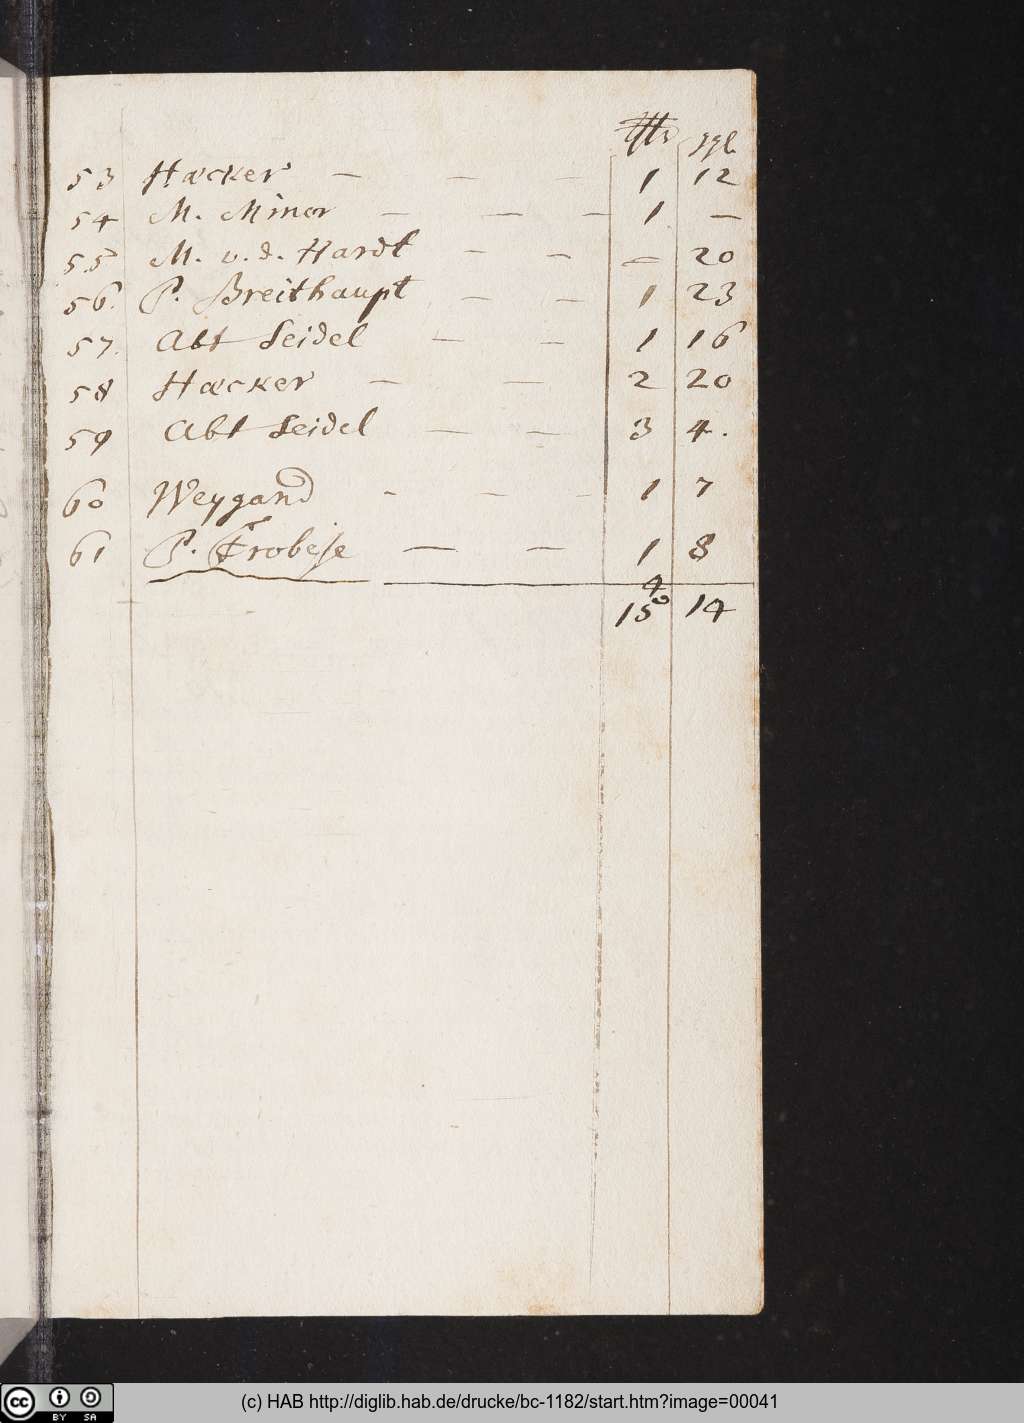 ggl.
53 Hæcker — — — 1 12
54 M. Minor — — — 1 —
55 M. v. d. Hardt — — — 20
56. P. Breithaupt — — 1 23
57. Abt Seidel — — 1 16
58 Hæcker — — 2 20
59 Abt Seidel — — 3 4.
60 Weygand - — - 1 7
61 P. — — 1 8
15 14
(c) HAB http://diglib.hab.de/drucke/bc-1182/start.htm?image=00041
cc BY SA